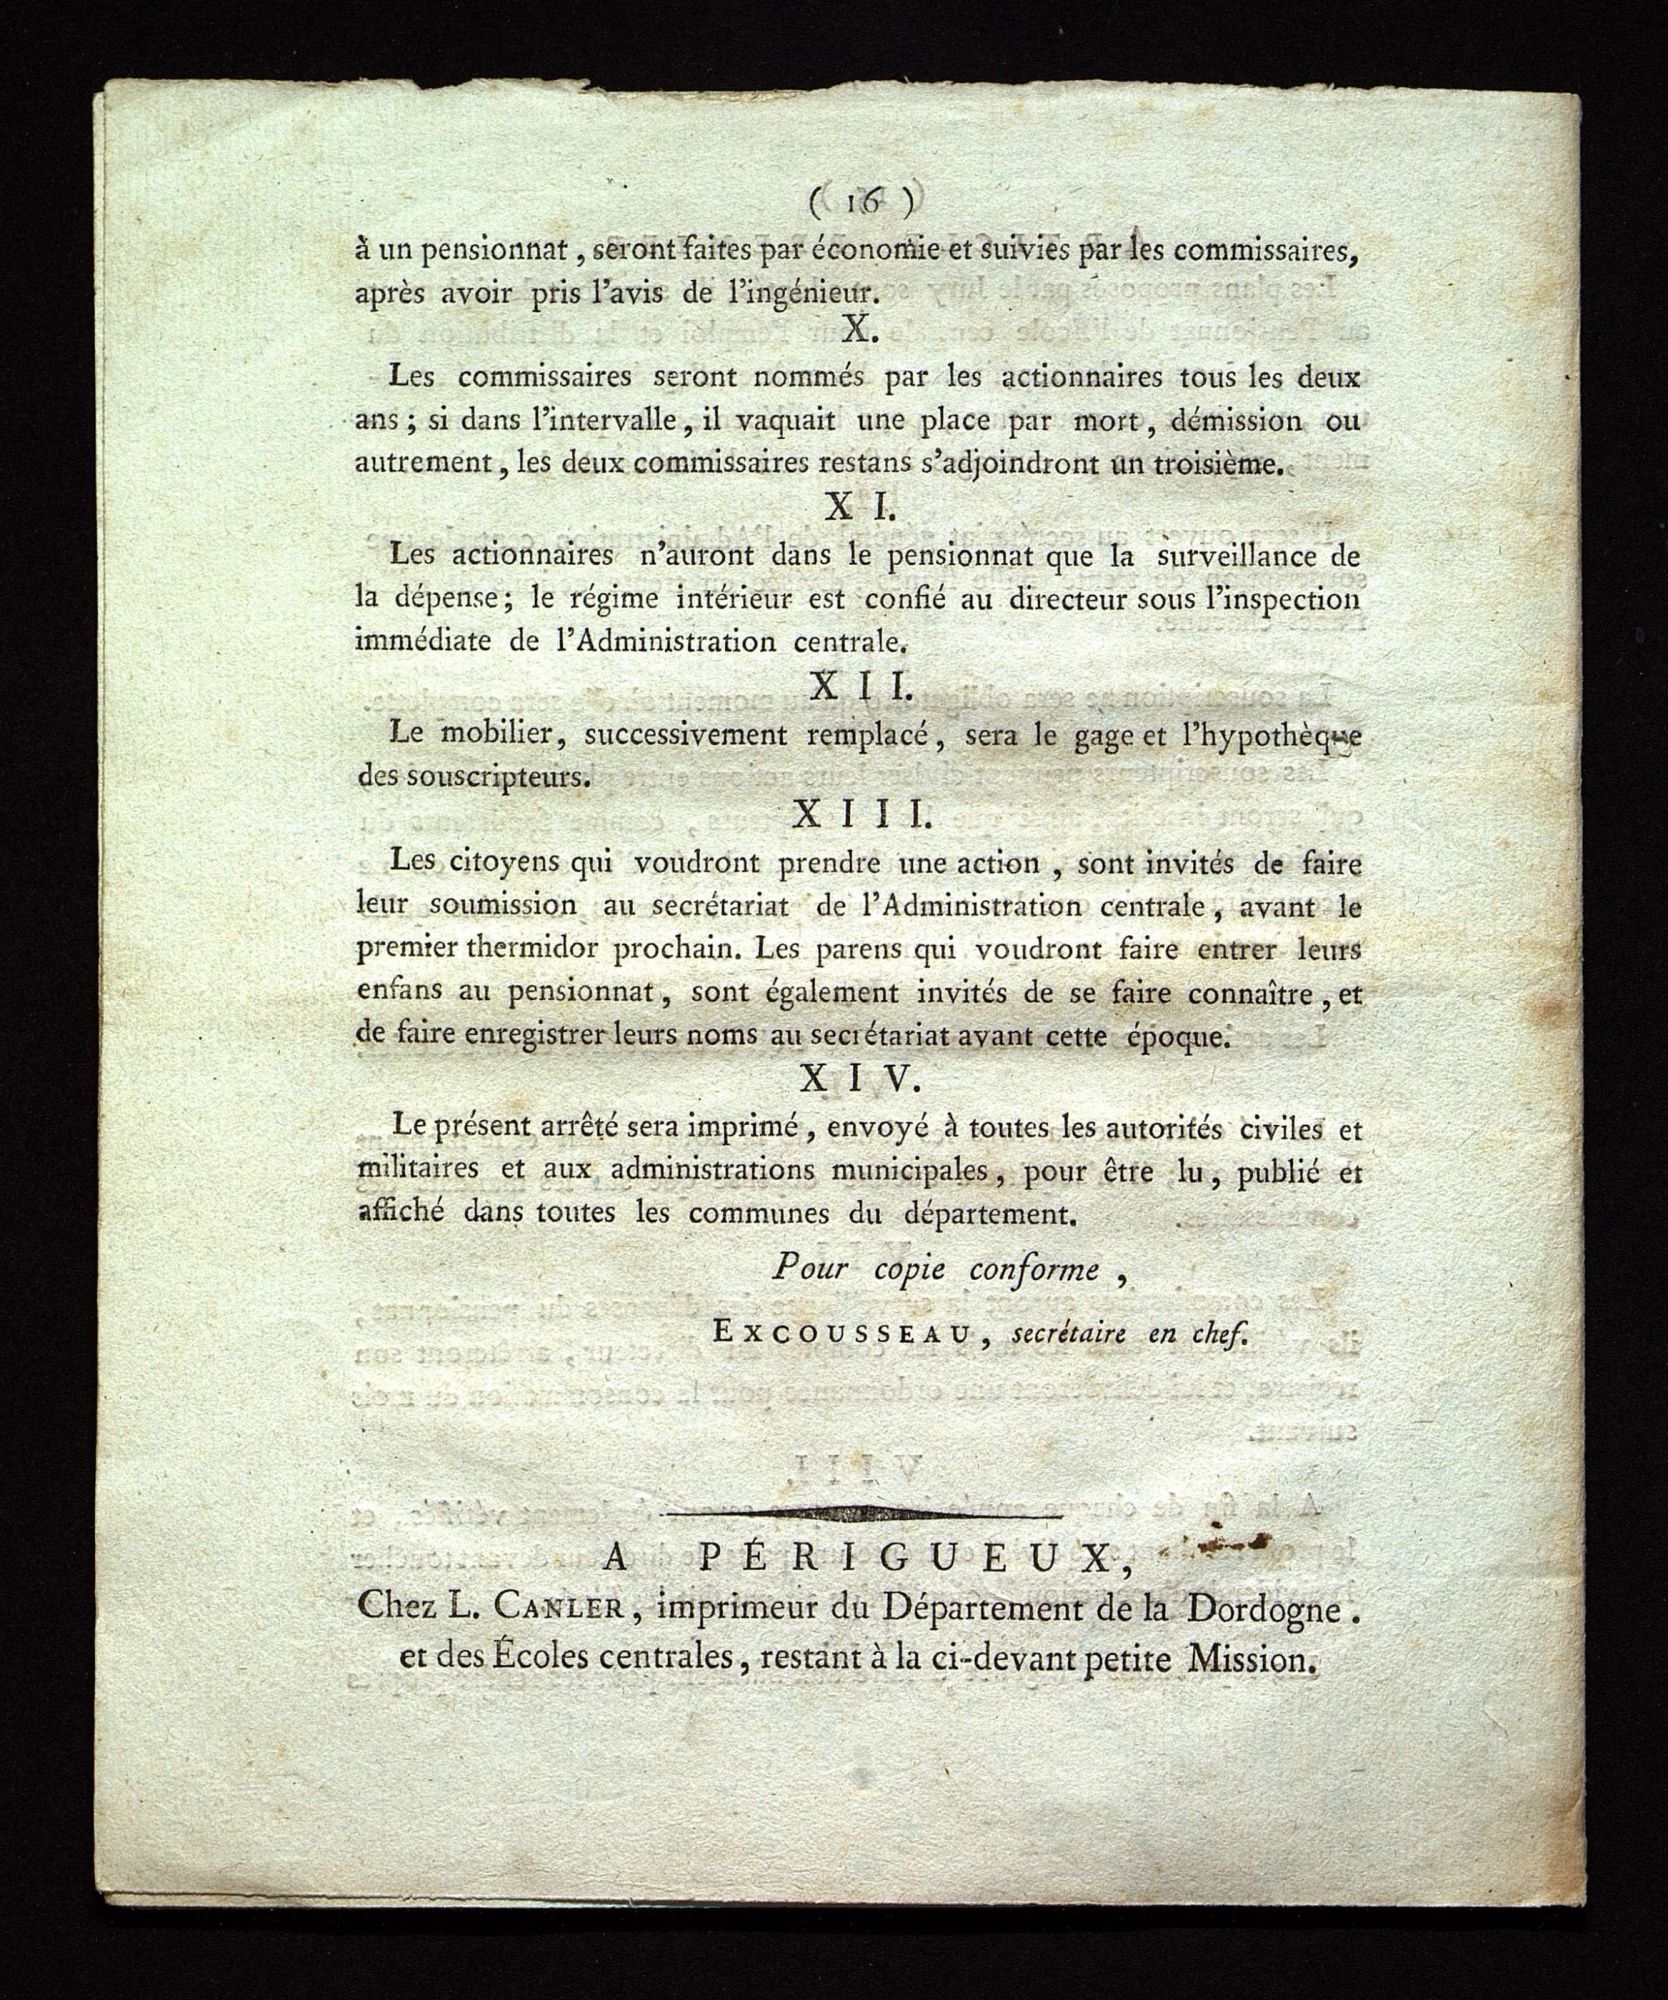 ( 16 )
à un pensionnat , seront faites par économie et suivies par les commissaires,
après avoir pris l'avis de l'ingénieur.
X.
Les commissaires seront nommés par les actionnaires tous les deux
ans ; si dans l'intervalle , il vaquait une place par mort , démission ou
autrement , les deux commissaires restans s'adjoindront un troisième.
X I.
Les actionnaires n'auront dans le pensionnat que la surveillance de
la dépense ; le régime intérieur est confié au directeur sous l'inspection
immédiate de l'Administration centrale.
X I I.
Le mobilier, successivement remplacé , sera le gage et l'hypothèque
des souscripteurs.
X I I I.
Les citoyens qui voudront prendre une action , sont invités de faire
leur soumission au secrétariat de l'Administration centrale , avant le
premier thermidor prochain. Les parens qui voudront faire entrer leurs
enfans au pensionnat , sont également invités de se faire connaître , et
de faire enregistrer leurs noms au secrétariat avant cette époque.
X I V.
Le présent arrêté sera imprimé , envoyé à toutes les autorités civiles et
militaires et aux administrations municipales , pour être lu , publié et
affiché dans toutes les communes du département.
Pour copie conforme ,
EXCOUSSEAU , secrétaire en chef.
A PÉRIGUEUX,
Chez L. CANLER , imprimeur du Département de la Dordogne .
et des Écoles centrales , restant à la ci-devant petite Mission.